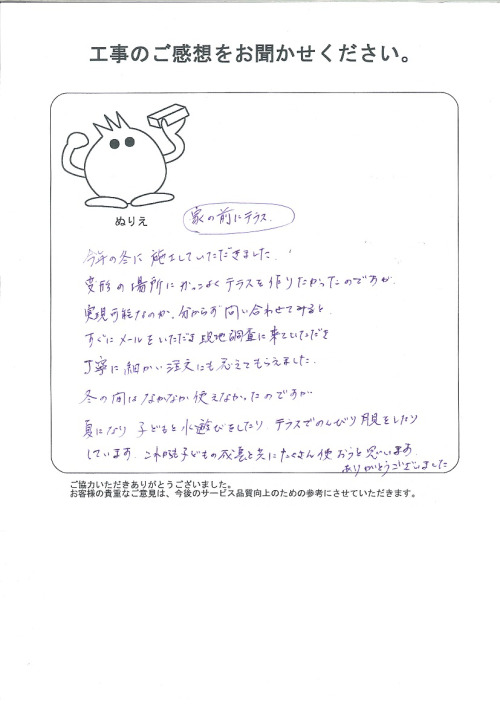 工事のご感想をお聞かせください。
ぬりえ
家の前にテラス.
今年の冬に 施工していただきました.
変形の場所にかっこよくテラスを作りたかったのですが
実現可能なのか、分からず問い合わせてみると
すぐにメールをいただき 現地調査に来ていただき
丁寧に細かい注文にも応えてもらえました.
冬の間はなかなか使えなかったのですが
夏になり 子どもと水遊びをしたり テラスでのんびり月見をしたり
しています. これから子どもの成長と共にたくさん使おうと思います.
ありがとうございました
ご協力いただきありがとうございました。
お客様の貴重なご意見は、今後のサービス品質向上のための参考にさせていただきます。